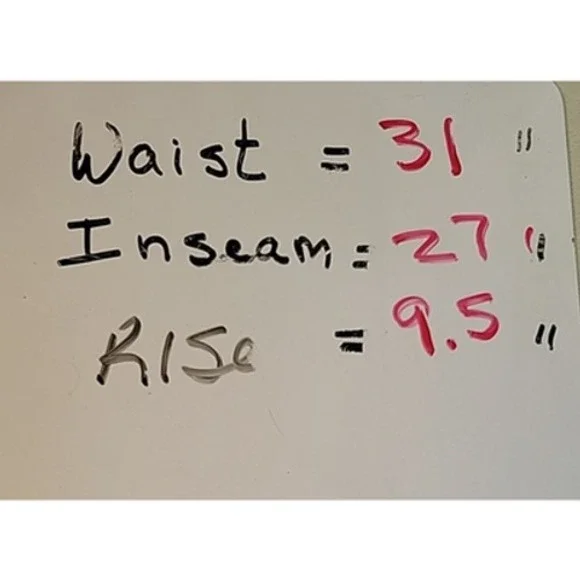 Waist = 31 "
Inseam = 27 "
RISe = 9.5 "